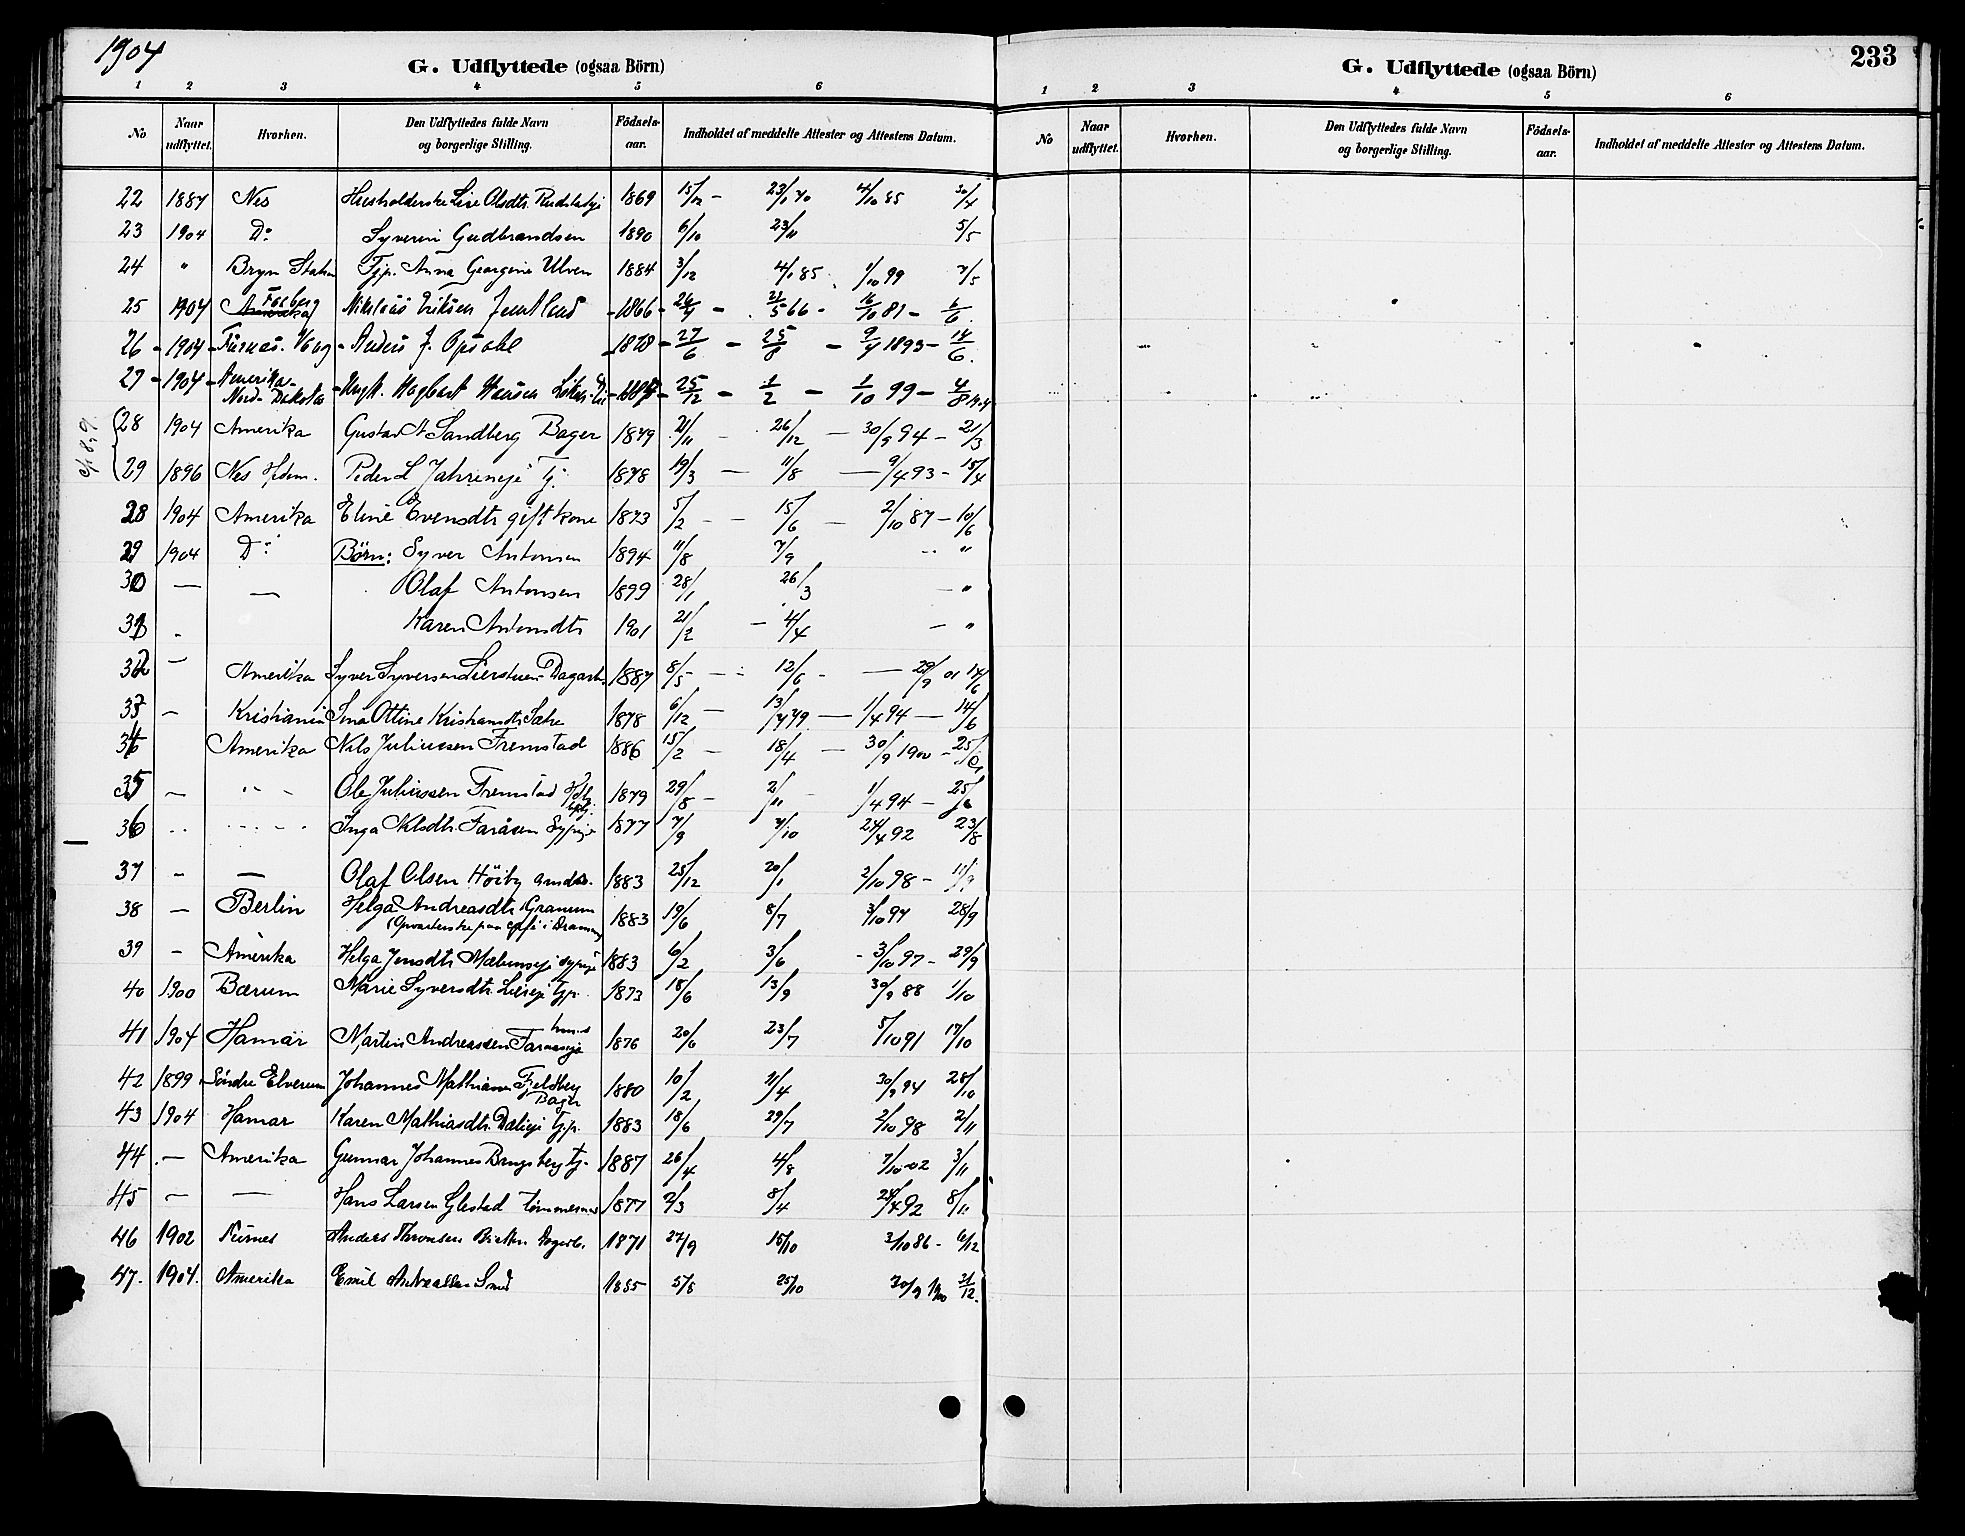 1904
G. Udflyttede (ogsaa Börn)
1 2 3 4 5 6
No Naar udflyttet. Hvorhen. Den Udflyttedes fulde Navn og borgerlige Stilling. Födsels-aar. Indholdet af meddelte Attester og Attestens Datum.
22 1887 Nes Husholderske Lise Olsdtr. 1869 15/12 - 23/1 70 4/10 85 30/4
23 1904 Do Syverin Gudbrandsen 1890 6/10 23/11 5/5
24 " Bryn Station Tjp. Anna Georgine Ulven 1884 3/12 4/1 85 1/10 99 7/5
25 1904 Amerika Nikolai Eriksen 1866 - 26/4 - 21/5 66 - 16/10 81 - 6/6
26 - 1904 - Furnes. Anders J. Opsahl - 1878 - 27/6 - 25/8 - 9/4 1893 - 14/6.
27 - 1904 - Amerika - Nord-Dakota - Ungk. Hagbart Hansen 25/12 - 1/2 - 1/10 99 - 4/8 1904
28 1904 Amerika Gustav A Sandberg Bager 1879 21/11 - 26/12 - 30/9 94 - 21/3
29 1896 Nes Hdem. Peder L Jahreneje Tj. 1878 19/3 - 11/8 - 9/4 93 - 15/4
28 1904 Amerika Eline Evensdtr gift kone 1873 5/2 - - 15/6 - 2/10 87 - 10/6
29 1904 Do Börn: Syver Antonsen 1894 11/8 7/9 - "
30 — — Olaf Antonsen 1899 28/1 26/3 - "
31 - Karen Antonsdtr 1901 21/2 - 4/4 - "
32 - Amerika Syver Syversen Lierstuen Dagarb. 1887 8/5 - 12/6 - — 29/9 01 14/6
33 - Kristiania Sina Ottine Kristiansdtr Sætre 1878 6/12 - 13/4 79 - 1/4 94 - 14/6
34 Amerika Nils Juliussen Fremstad 1886 15/2 - 18/4 - 30/9 1900 - 25/6
35 - " - Ole Juliussen Fremstad 1879 29/8 - 2/11 - 1/4 94 - 25/6
36 " " Inga Nilsdtr. Faråsen Sypige 1877 7/9 7/10 24/4 92 23/8
37 - — Olaf Olsen Höiby 1883 25/12 20/1 2/10 98 -
38 - Berlin Helga Andreasdtr. Granum 1883 19/6 8/7 3/10 97 28/9
39 - Amerika Helga Jensdtr. sypige 1883 6/2 3/6 - 3/10 97 - 29/9
40 1900 Bærum Marie Syversdtr. Lieeje tjp. 1873 18/6 13/9 30/9 88 1/10
41 1904 Hamar Martin Andreassen 1876 20/6 23/7 5/10 91 17/10
42 1899 Söndre Elverum Johannes Mathiasen Fjeldberg Bager 1880 10/2 2/4 30/9 94 28/10
43 1904 Hamar Karen Mathiasdtr. Dalieje tjp. 1883 18/6 29/7 2/10 98 2/11
44 - Amerika Gunnar Johannes Brugsberg tj. 1887 26/4 4/8 7/10 02 3/11
45 - — Hans Larsen Glestad tömmermand 1877 2/3 8/4 24/4 92 8/11
46 1902 Furnes Anders Thronsen 1871 27/9 15/10 3/10 86 - 6/12
47. 1904. Amerika Emil Andreassen 1885 5/8 25/10 30/9 1900 21/12.
233
G. Udflyttede (ogsaa Börn)
1 2 3 4 5 6
No Naar udflyttet. Hvorhen. Den Udflyttedes fulde Navn og borgerlige Stilling. Födsels-aar. Indholdet af meddelte Attester og Attestens Datum.